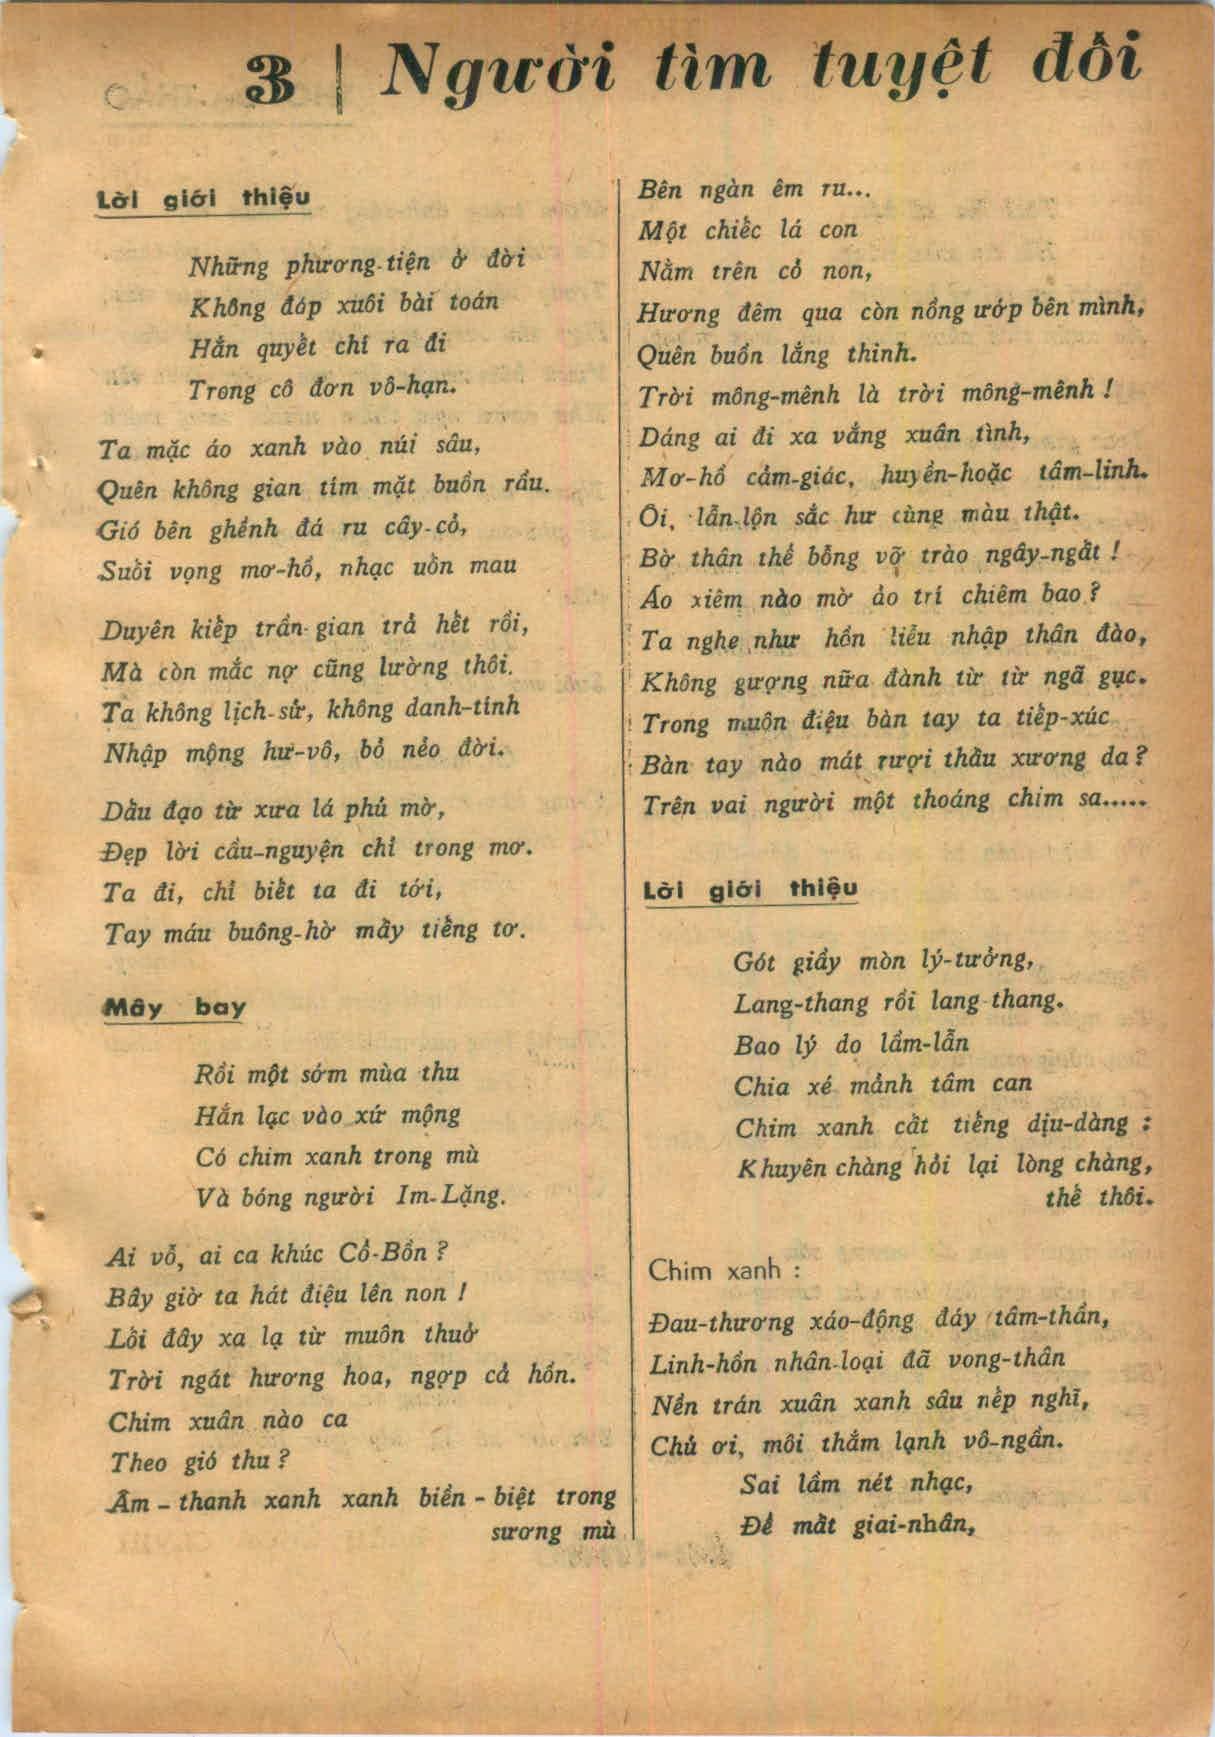 3 | Người tìm tuyệt đối
Lời giới thiệu
Những phương-tiện ở đời
Không đáp xuôi bài toán
Hắn quyết chí ra đi
Trong cô đơn vô-hạn.
Ta mặc áo xanh vào núi sâu,
Quên không gian tím mặt buồn rầu.
Gió bên ghềnh đá ru cây-cỏ,
Suối vọng mơ-hồ, nhạc uốn mau
Duyên kiếp trần-gian trả hết rồi,
Mà còn mắc nợ cũng lường thôi.
Ta không lịch-sử, không danh-tính
Nhập mộng hư-vô, bỏ nẻo đời.
Dấu đạo từ xưa lá phủ mờ,
Đẹp lời cầu-nguyện chỉ trong mơ.
Ta đi, chỉ biết ta đi tới,
Tay máu buông-hờ mấy tiếng tơ.
Mây bay
Rồi một sớm mùa thu
Hắn lạc vào xứ mộng
Có chim xanh trong mù
Và bóng người Im-Lặng.
Ai vỗ, ai ca khúc Cổ-Bồn ?
Bây giờ ta hát điệu lên non !
Lối đây xa lạ từ muôn thuở
Trời ngát hương hoa, ngợp cả hồn.
Chim xuân nào ca
Theo gió thu ?
Âm - thanh xanh xanh biền - biệt trong
sương mù
Bên ngàn êm ru...
Một chiếc lá con
Nằm trên cỏ non,
Hương đêm qua còn nồng ướp bên mình,
Quên buồn lắng thinh.
Trời mông-mênh là trời mông-mênh !
Dáng ai đi xa vắng xuân tình,
Mơ-hồ cảm-giác, huyền-hoặc tâm-linh.
Ôi, lẫn-lộn sắc hư cùng màu thật.
Bờ thân thế bỗng vỡ trào ngây-ngất !
Áo xiêm nào mờ ảo trí chiêm bao ?
Ta nghe như hồn liễu nhập thân đào,
Không gượng nữa đành từ từ ngã gục.
Trong muôn điệu bàn tay ta tiếp-xúc
Bàn tay nào mát rượi thấu xương da ?
Trên vai người một thoáng chim sa.....
Lời giới thiệu
Gót giầy mòn lý-tưởng,
Lang-thang rồi lang-thang.
Bao lý do lầm-lẫn
Chia xé mảnh tâm can
Chim xanh cất tiếng dịu-dàng :
Khuyên chàng hỏi lại lòng chàng,
thế thôi.
Chim xanh :
Đau-thương xáo-động đáy tâm-thần,
Linh-hồn nhân-loại đã vong-thân
Nền trán xuân xanh sâu nếp nghĩ,
Chủ ơi, môi thắm lạnh vô-ngần.
Sai lầm nét nhạc,
Để mất giai-nhân,